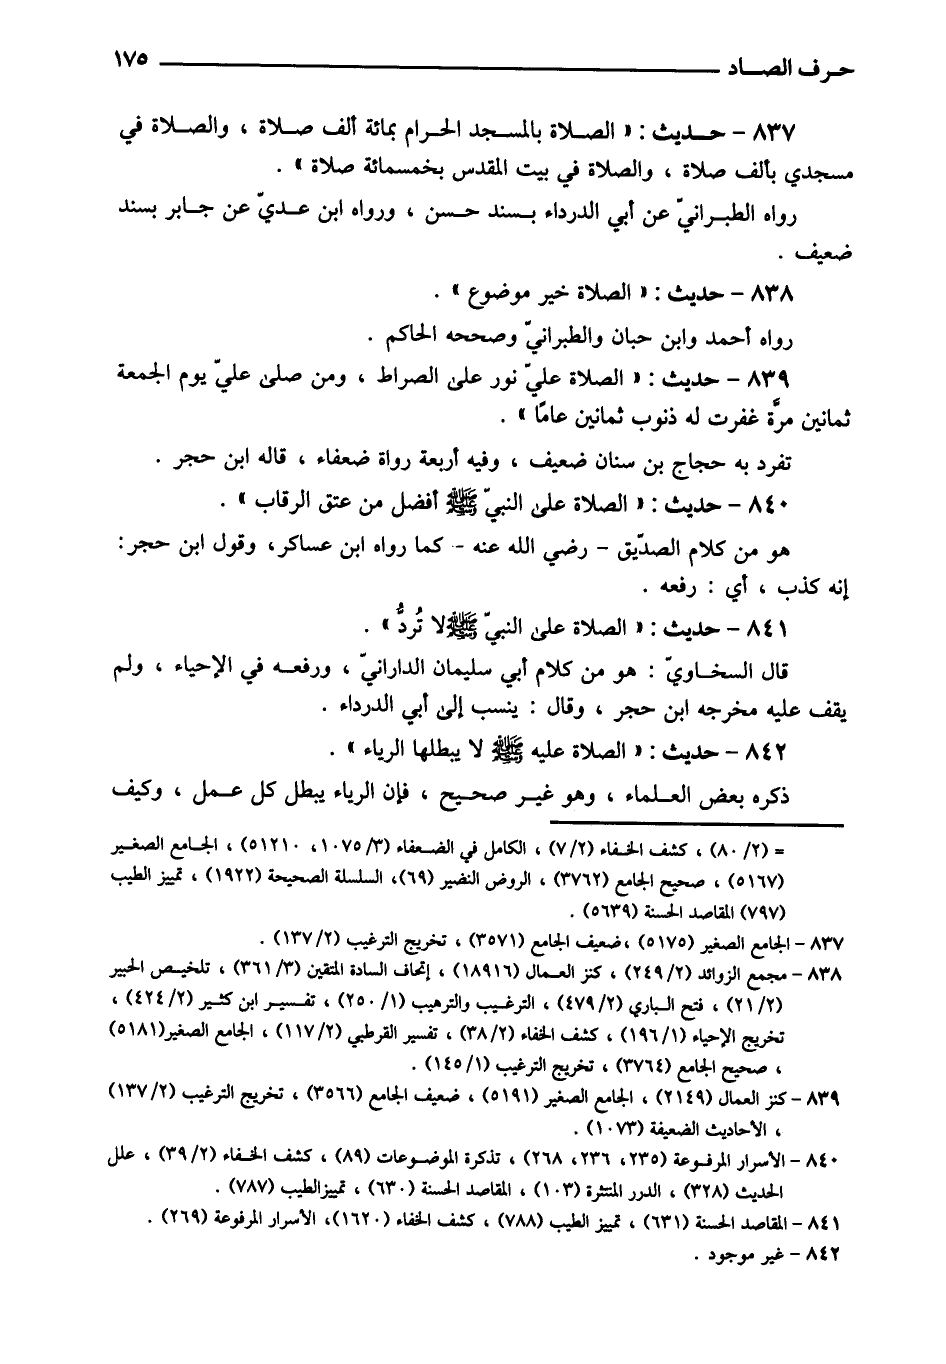 حرف الصاد ١٧٥
٨٣٧ - حديث : « الصلاة بالمسجد الحرام بمائة ألف صلاة ، والصلاة في
مسجدي بألف صلاة ، والصلاة في بيت المقدس بخمسمائة صلاة » .
رواه الطبرانيّ عن أبي الدرداء بسند حسن ، ورواه ابن عديّ عن جابر بسند
ضعيف .
٨٣٨ - حديث : « الصلاة خير موضوع » .
رواه أحمد وابن حبان والطبرانيّ وصححه الحاكم .
٨٣٩ - حديث : « الصلاة عليّ نور على الصراط ، ومن صلى عليّ يوم الجمعة
ثمانين مرَّة غفرت له ذنوب ثمانين عامًا » .
تفرد به حجاج بن سنان ضعيف ، وفيه أربعة رواة ضعفاء ، قاله ابن حجر .
٨٤٠ - حديث : « الصلاة على النبيّ ﷺ أفضل من عتق الرقاب » .
هو من كلام الصدّيق - رضي الله عنه - كما رواه ابن عساكر، وقول ابن حجر:
إنه كذب ، أي : رفعه .
٨٤١ - حديث : « الصلاة على النبيّ ﷺ لا تُردُّ » .
قال السخاويّ : هو من كلام أبي سليمان الدارانيّ ، ورفعه في الإحياء ، ولم
يقف عليه مخرجه ابن حجر ، وقال : ينسب إلى أبي الدرداء .
٨٤٢ - حديث : « الصلاة عليه ﷺ لا يبطلها الرياء » .
ذكره بعض العلماء ، وهو غير صحيح ، فإن الرياء يبطل كل عمل ، وكيف
= (٨٠/٢) ، كشف الخفاء (٧/٢) ، الكامل في الضعفاء (١٠٧٥/٣، ٥١٢١٠) ، الجامع الصغير
(٥١٦٧) ، صحيح الجامع (٣٧٦٢) ، الروض النضير (٦٩)، السلسلة الصحيحة (١٩٢٢) ، تمييز الطيب
(٧٩٧) المقاصد الحسنة (٥٦٣٩) .
٨٣٧ - الجامع الصغير (٥١٧٥) ،ضعيف الجامع (٣٥٧١) ، تخريج الترغيب (١٣٧/٢) .
٨٣٨ - مجمع الزوائد (٢٤٩/٢) ، كنز العمال (١٨٩١٦) ، إتحاف السادة المتقين (٣٦١/٣) ، تلخيص الحبير
(٢١/٢) ، فتح الباري (٤٧٩/٢) ، الترغيب والترهيب (٢٥٠/١) ، تفسير ابن كثير (٤٢٤/٢) ،
تخريج الإحياء (١٩٦/١) ، كشف الخفاء (٣٨/٢) ، تفسير القرطبي (١١٧/٢) ، الجامع الصغير(٥١٨١)
، صحيح الجامع (٣٧٦٤) ، تخريج الترغيب (١٤٥/١) .
٨٣٩ - كنز العمال (٢١٤٩) ، الجامع الصغير (٥١٩١) ، ضعيف الجامع (٣٥٦٦) ، تخريج الترغيب (١٣٧/٢)
، الأحاديث الضعيفة (١٠٧٣) .
٨٤٠ - الأسرار المرفوعة (٢٣٥، ٢٣٦، ٢٦٨) ، تذكرة الموضوعات (٨٩) ، كشف الخفاء (٣٩/٢) ، علل
الحديث (٣٢٨) ، الدرر المنتثرة (١٠٣) ، المقاصد الحسنة (٦٣٠) ، تمييزالطيب (٧٨٧) .
٨٤١ - المقاصد الحسنة (٦٣١) ، تمييز الطيب (٧٨٨) ، كشف الخفاء (١٦٢٠)، الأسرار المرفوعة (٢٦٩) .
٨٤٢ - غير موجود .